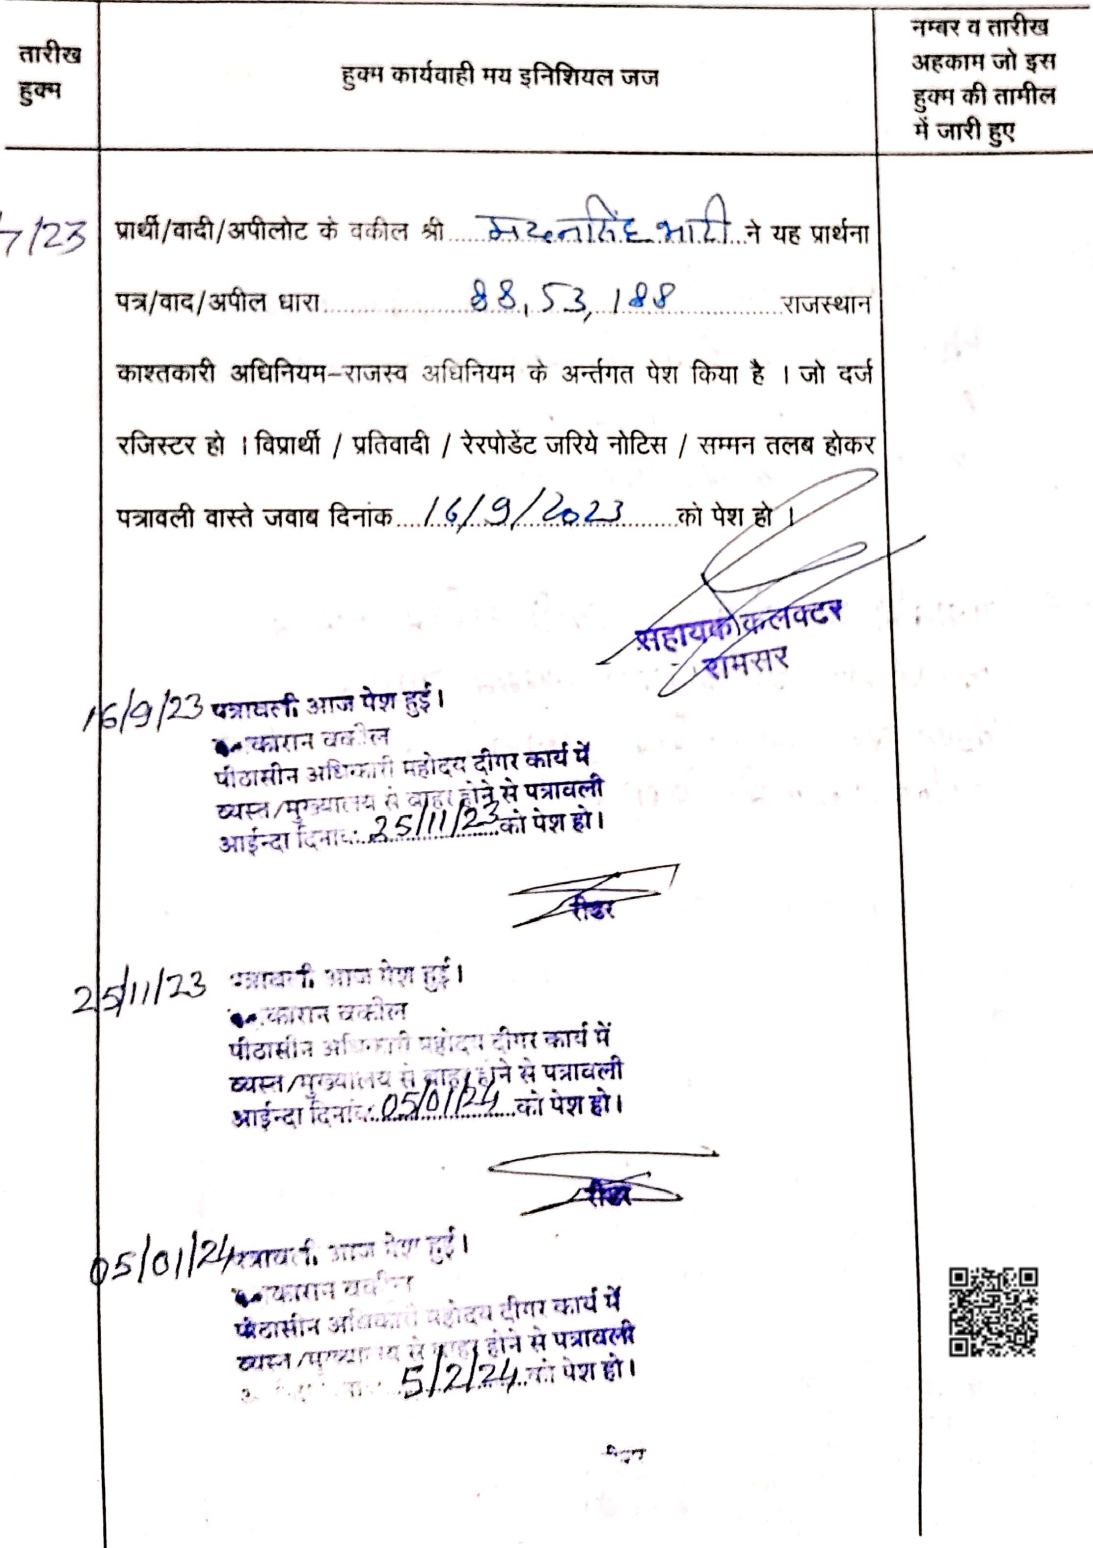 तारीख
हुक्म
हुक्म कार्यवाही मय इनिशियल जज
नम्बर व तारीख
अहकाम जो इस
हुक्म की तामील
में जारी हुए
7/23 प्रार्थी/वादी/अपीलोट के वकील श्री मदनसिंह भाटी ने यह प्रार्थना
पत्र/वाद/अपील धारा 88, 53, 188 राजस्थान
काश्तकारी अधिनियम-राजस्व अधिनियम के अर्न्तगत पेश किया है । जो दर्ज
रजिस्टर हो । विप्रार्थी / प्रतिवादी / रेरपोडेंट जरिये नोटिस / सम्मन तलब होकर
पत्रावली वास्ते जवाब दिनांक 16/9/2023 को पेश हो ।
सहायक कलक्टर
रामसर
16/9/23 पत्रावली आज पेश हुई।
कारान वकील
पीठासीन अधिकारी महोदय दीगर कार्य में
व्यस्त/मुख्यालय से बाहर होने से पत्रावली
आईन्दा दिनांक 25/11/23 को पेश हो।
रीडर
25/11/23 पत्रावली आज पेश हुई।
कारान वकील
पीठासीन अधिकारी महोदय दीगर कार्य में
व्यस्त/मुख्यालय से बाहर होने से पत्रावली
आईन्दा दिनांक 05/01/24 को पेश हो।
रीडर
05/01/24 पत्रावली आज पेश हुई।
कारान वकील
पीठासीन अधिकारी महोदय दीगर कार्य में
व्यस्त/मुख्यालय से बाहर होने से पत्रावली
5/2/24 को पेश हो।